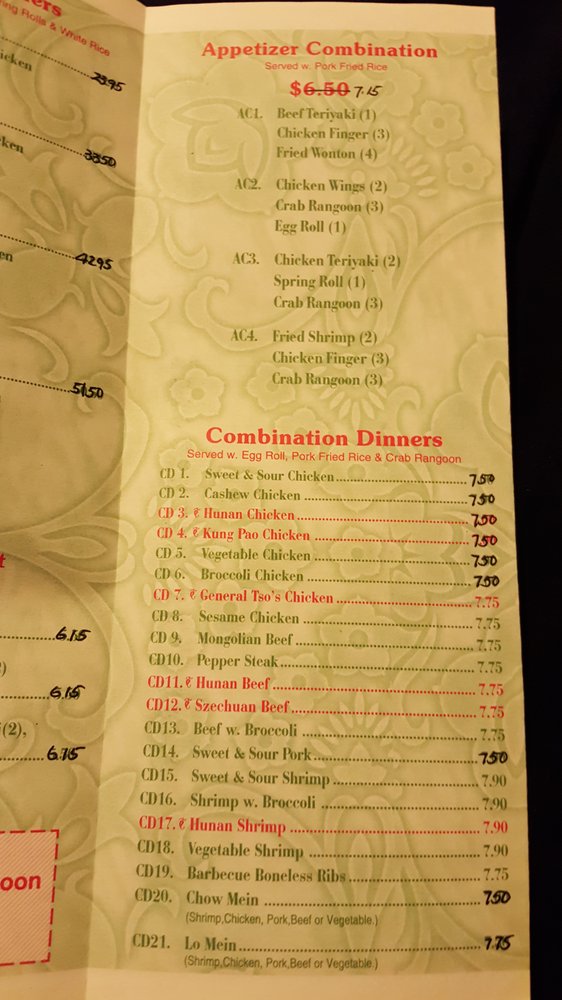 ers
ing Rolls & White Rice
icken
23.95
ken
33.50
en
42.95
51.50
t
6.15
)
6.15
(2),
6.75
oon
Appetizer Combination
Served w. Pork Fried Rice
$6.50 7.15
AC1. Beef Teriyaki (1)
Chicken Finger (3)
Fried Wonton (4)
AC2. Chicken Wings (2)
Crab Rangoon (3)
Egg Roll (1)
AC3. Chicken Teriyaki (2)
Spring Roll (1)
Crab Rangoon (3)
AC4. Fried Shrimp (2)
Chicken Finger (3)
Crab Rangoon (3)
Combination Dinners
Served w. Egg Roll, Pork Fried Rice & Crab Rangoon
CD 1. Sweet & Sour Chicken 7.50
CD 2. Cashew Chicken 7.50
CD 3. Hunan Chicken 7.50
CD 4. Kung Pao Chicken 7.50
CD 5. Vegetable Chicken 7.50
CD 6. Broccoli Chicken 7.50
CD 7. General Tso's Chicken 7.75
CD 8. Sesame Chicken 7.75
CD 9. Mongolian Beef 7.75
CD10. Pepper Steak 7.75
CD11. Hunan Beef 7.75
CD12. Szechuan Beef 7.75
CD13. Beef w. Broccoli 7.75
CD14. Sweet & Sour Pork 7.50
CD15. Sweet & Sour Shrimp 7.90
CD16. Shrimp w. Broccoli 7.90
CD17. Hunan Shrimp 7.90
CD18. Vegetable Shrimp 7.90
CD19. Barbecue Boneless Ribs 7.75
CD20. Chow Mein 7.50
(Shrimp,Chicken, Pork,Beef or Vegetable.)
CD21. Lo Mein 7.75
(Shrimp,Chicken, Pork,Beef or Vegetable.)